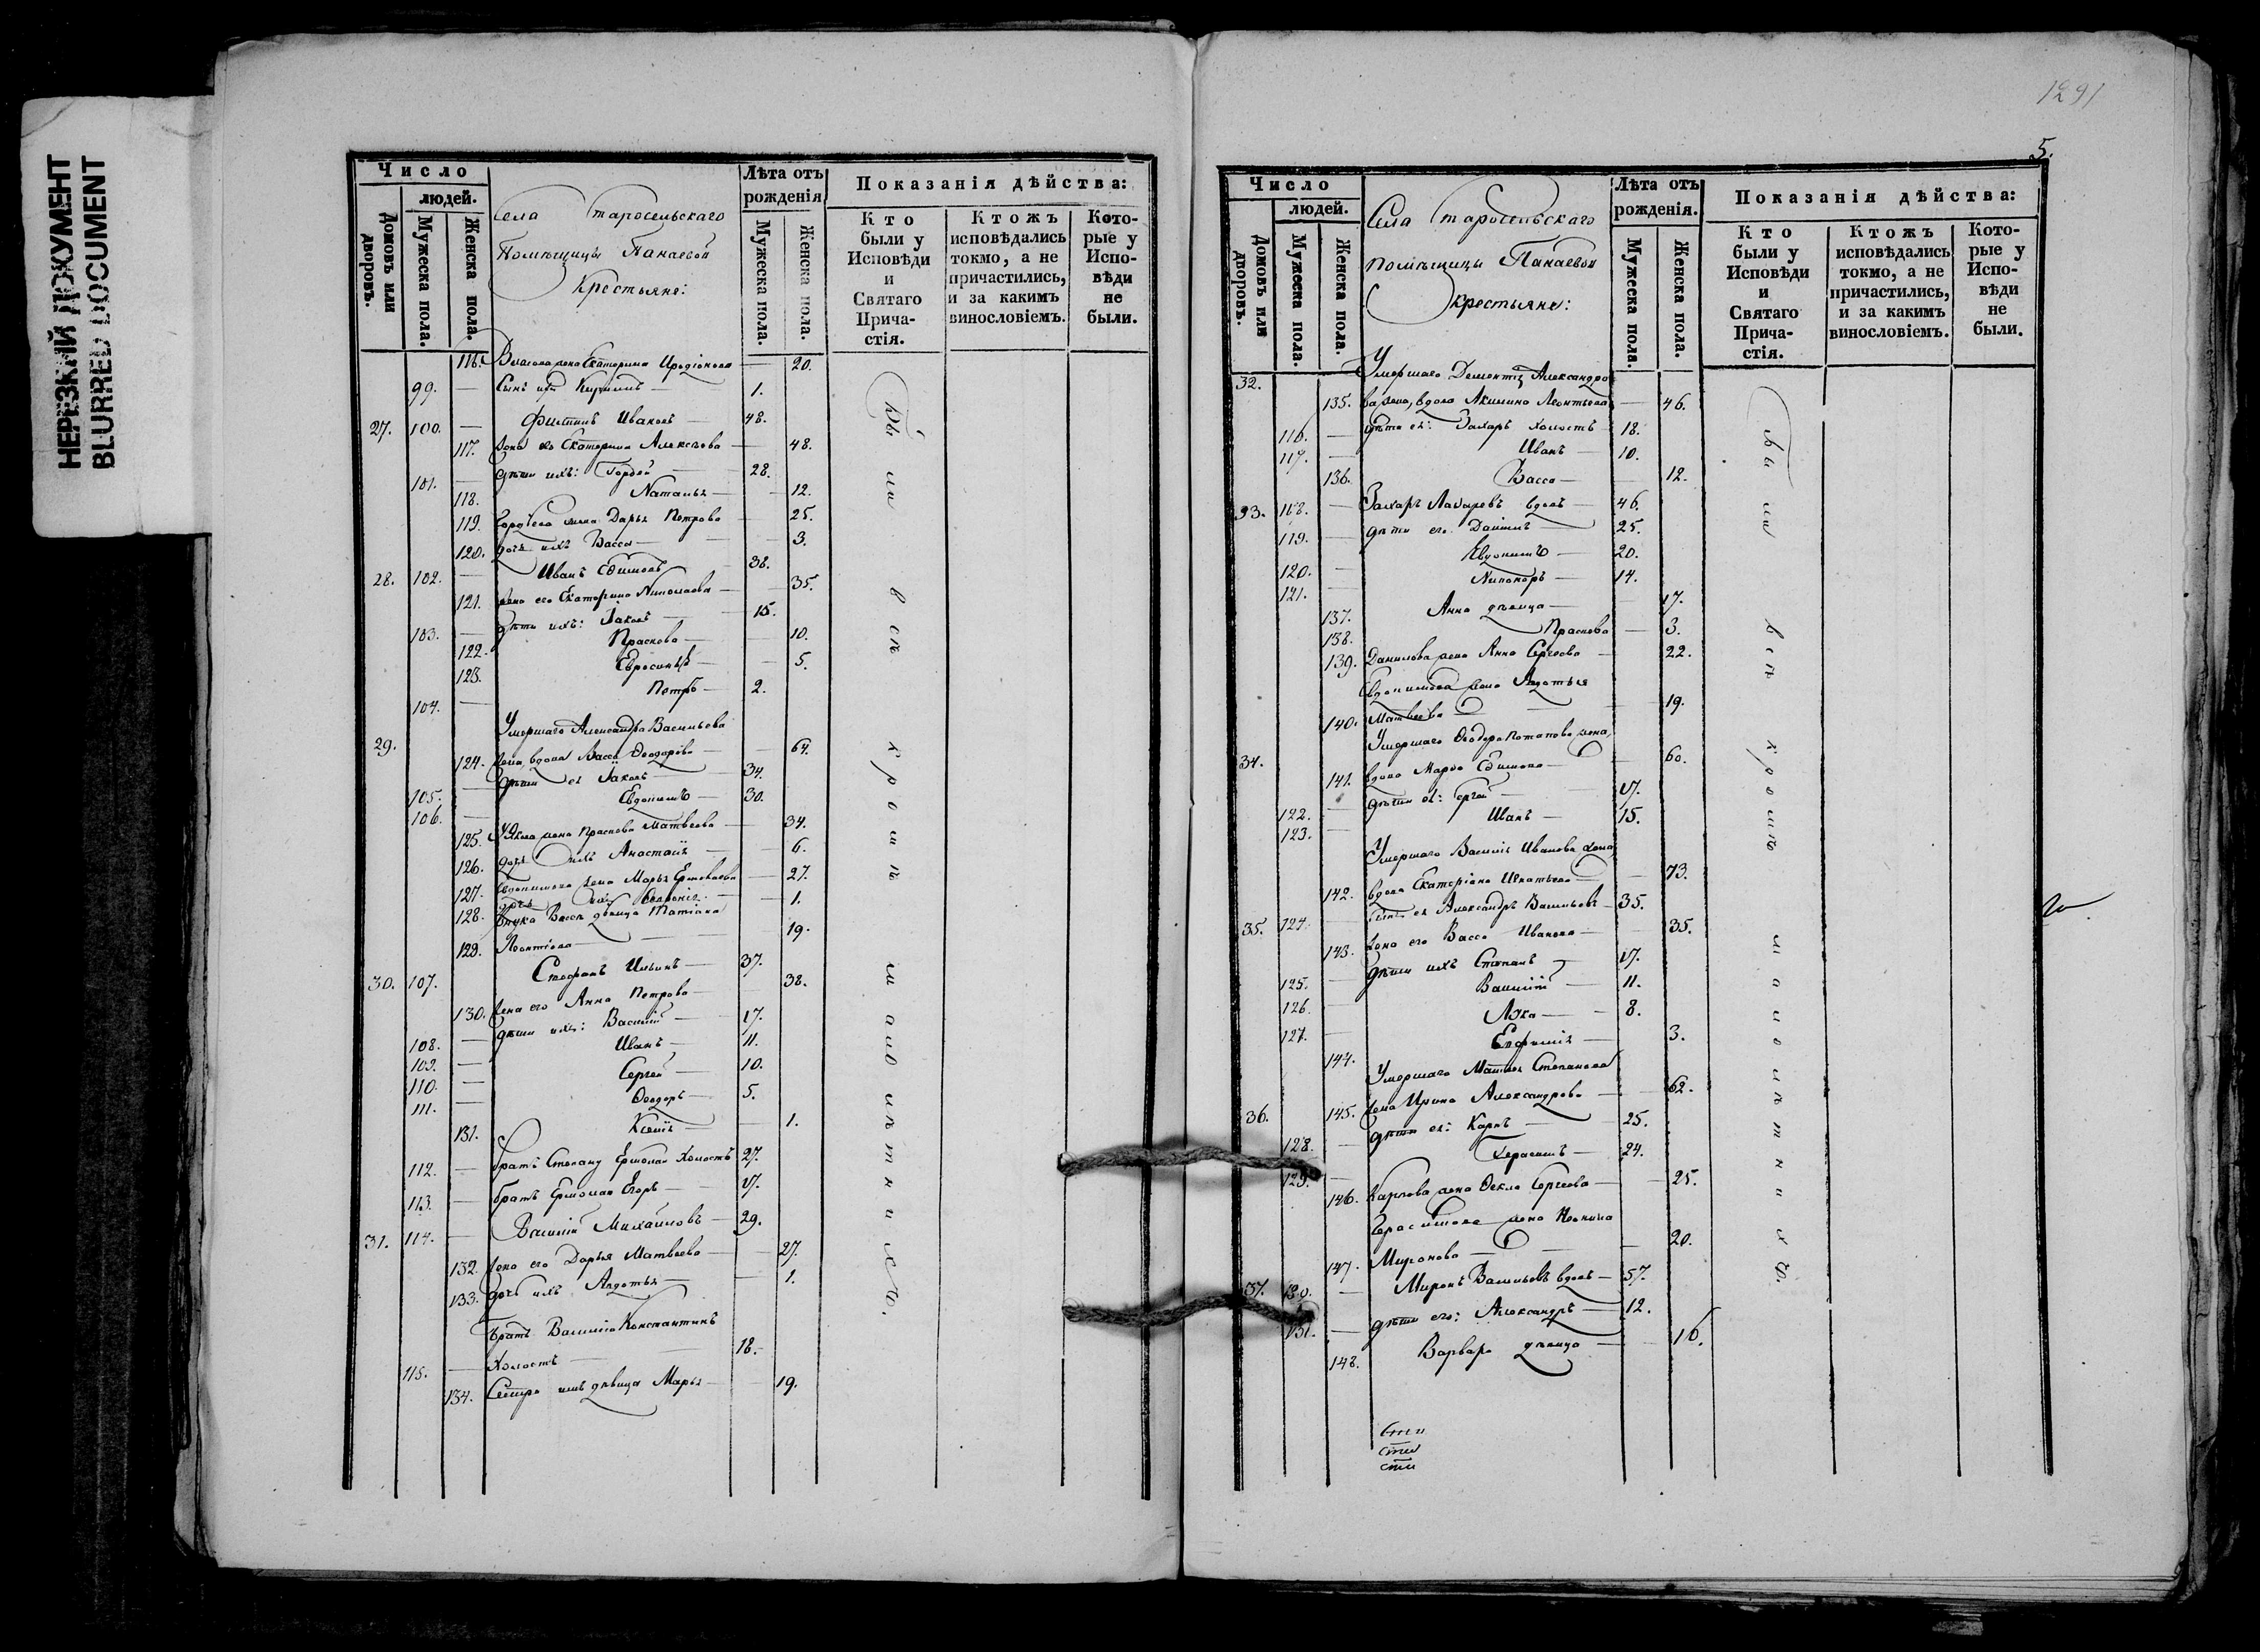 НЕРЕЗКИЙ ДОКУМЕНТ
BLURRED DOCUMENT
Число
людей.
Домовъ или дворовъ.
Мужеска пола.
Женска пола.
Села Старосельскаго
Помѣщицы Панаевой
Крестьяне:
Лѣта отъ рожденія
Мужеска пола.
Женска пола.
Показанія дѣйства:
Кто были у Исповѣди и Святаго Прича-стія.
Ктожъ исповѣдались токмо, а не причастились, и за какимъ винословіемъ.
Кото-рые у Испо-вѣди не были.
116. жена Екатерина 20.
99. — Сынъ ихъ Кириллъ — 1.
27. 100. — Филиппъ Ивановъ 48.
117. Жена его Екатерина Алексѣева — 48.
101. — дѣти ихъ: Гордей — 28.
118. Наталья — 12.
119. Гордѣева жена Дарья Петрова — 25.
120. дочь ихъ Васса — 3.
28. 102. — Иванъ Ефимовъ 38.
121. Жена его Екатерина Николаева — 35.
103. — Дѣти ихъ: Іаковъ — 15.
122. Праскева — 10.
123. Евросинья — 5.
104. — Петръ — 2.
29. Умершаго Александра Васильева
124. Жена, вдова Васса Ѳеодорова — 64.
105. — Дѣти ея Іаковъ — 34.
106. — Евдокимъ — 30.
125. Іаковлева жена Праскева Матвѣева — 34.
126. дочь ихъ Анастасія — 6.
127. Евдокимова жена Марья Ермолаева — 27.
128. дочь ихъ — 1.
Внука Вассы дѣвица Татіана
129. Леонтіева — 19.
30. 107. Стефанъ Ильинъ — 37.
130. Жена его Анна Петрова — 38.
108. — дѣти ихъ: Василій — 17.
109. — Иванъ — 11.
110. — Сергей — 10.
111. — Ѳеодоръ — 5.
131. Ксенія — 1.
112. — братъ Степану Ермолай Холостъ 27.
113. — братъ Ермолаю Егоръ — 17.
31. 114. — Василій Михайловъ — 29.
132. Жена его Дарья Матвѣева — 27.
133. дочь ихъ Авдотья — 1.
Братъ Василію Константинъ
115. — Холостъ — 18.
134. Сестра имъ дѣвица Марья — 19.
Были всѣ кромѣ малолѣтнихъ.
1291
5.
Число
людей.
Домовъ или дворовъ.
Мужеска пола.
Женска пола.
Села Старосельскаго
помѣщицы Панаевой
Крестьяне:
Лѣта отъ рожденія.
Мужеска пола.
Женска пола.
Показанія дѣйства:
Кто были у Исповѣди и Святаго Прича-стія.
Ктожъ исповѣдались токмо, а не причастились, и за какимъ винословіемъ.
Кото-рые у Испо-вѣди не были.
32. Умершаго Дементія Александро
135. ва жена, вдова Акилина Леонтьева — 46.
116. — дѣти ея: Захаръ холостъ 18.
117. — Иванъ — 10.
136. Васса — 12.
33. 118. — Захаръ Лазаревъ вдовъ — 46.
119. — дѣти его Даніилъ — 25.
120. — Евдокимъ — 20.
121. — Никаноръ — 14.
137. Анна дѣвица — 17.
138. Праскева — 3.
139. Данилова жена Анна Сергеева — 22.
Евдокимова жена Авдотья
140. Матвѣева — 19.
34. Умершаго Ѳеодора Потапова жена,
141. вдова Марѳа Ефимова — 60.
122. — дѣти ея: Сергей — 17.
123. — Иванъ — 15.
Умершаго Василія Иванова жена,
142. вдова Екатерина Игнатьева — 73.
35. 124. — Сынъ ея Александръ Васильевъ — 35.
143. Жена его Васса Иванова — 35.
125. — Дѣти ихъ Степанъ — 17.
126. — Василій — 11.
127. — Лука — 8.
144. Евфимія — 3.
Умершаго Матвея Степанова
36. 145. Жена Ирина Александрова — 62.
128. — Дѣти ея: Карпъ — 25.
129. — Герасимъ — 24.
146. Карпова жена Ѳекла Сергеева — 25.
Герасимова жена
147. Миронова — 20.
37. 130. — Миронъ Васильевъ вдовъ — 57.
131. — дѣти его: Александръ — 12.
148. Варвара дѣвица — 16.
Были всѣ кромѣ малолѣтнихъ.